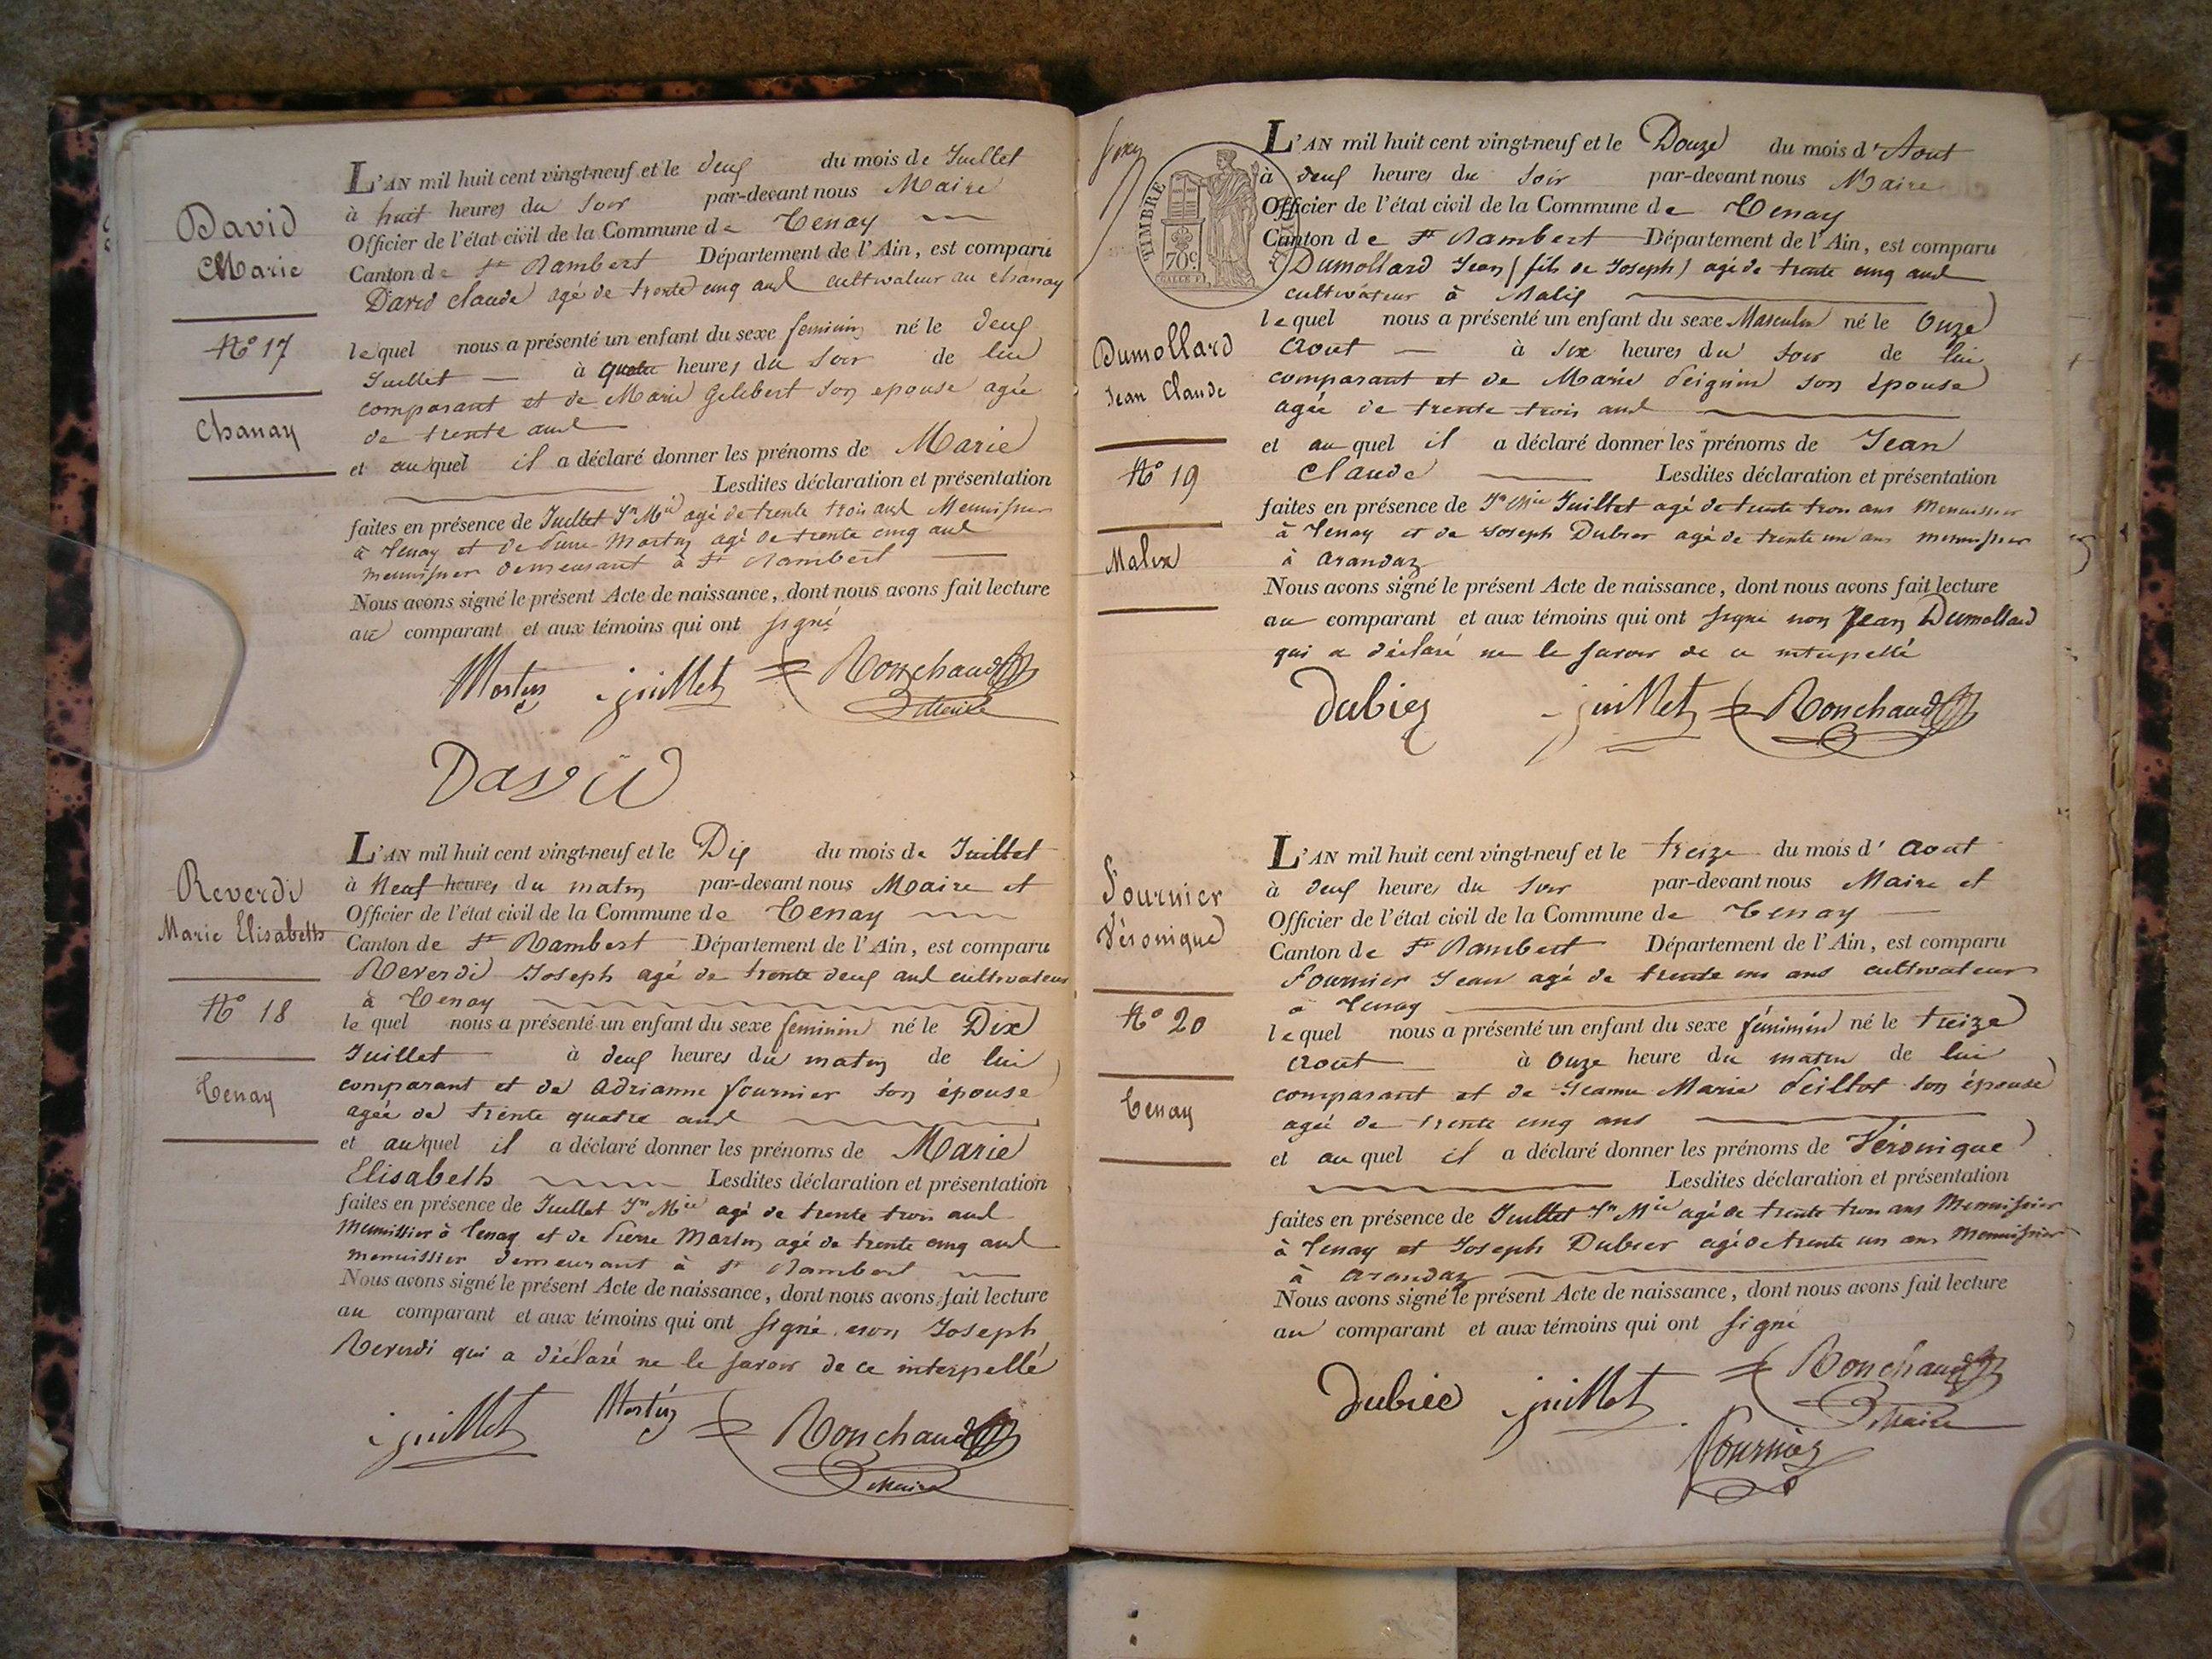 David
Marie
N° 17
Chanay
L'AN mil huit cent vingt-neuf et le deux du mois de Juillet
à huit heures du soir par-devant nous Maire
Officier de l'état civil de la Commune de Tenay
Canton de St Rambert Département de l'Ain, est comparu
David Claude agé de trente cinq ans cultivateur au Chanay
lequel nous a présenté un enfant du sexe feminin né le deux
Juillet à quatre heures du soir de lui
comparant et de Marie Gelibert son epouse agée
de trente ans
et auquel il a déclaré donner les prénoms de Marie
Lesdites déclaration et présentation
faites en présence de Juillet Jn Mie agé de trente trois ans Menuisier
à Tenay et de Pierre Martin agé de trente cinq ans
menuisier demeurant à St Rambert
Nous avons signé le présent Acte de naissance, dont nous avons fait lecture
au comparant et aux témoins qui ont signé
Martin juillet Ronchaud
Maire
David
Reverdi
Marie Elisabeth
N° 18
Tenay
L'AN mil huit cent vingt-neuf et le Dix du mois de Juillet
à Neuf heures du matin par-devant nous Maire et
Officier de l'état civil de la Commune de Tenay
Canton de St Rambert Département de l'Ain, est comparu
Reverdi Joseph agé de trente deux ans cultivateur
à Tenay
lequel nous a présenté un enfant du sexe feminin né le Dix
Juillet à deux heures du matin de lui
comparant et de Adrianne fournier son épouse
agée de trente quatre ans
et auquel il a déclaré donner les prénoms de Marie
Elisabeth Lesdites déclaration et présentation
faites en présence de Juillet Jn Mie agé de trente trois ans
Menuissier à Tenay et de Pierre Martin agé de trente cinq ans
menuissier demeurant à St Rambert
Nous avons signé le présent Acte de naissance, dont nous avons fait lecture
au comparant et aux témoins qui ont signé non Joseph
Reverdi qui a déclaré ne le savoir de ce interpellé
juillet Martin Ronchaud
Maire
TIMBRE
70c
Dumollard
Jean Claude
N° 19
Malix
L'AN mil huit cent vingt-neuf et le Douze du mois d'Aout
à deux heures du soir par-devant nous Maire
Officier de l'état civil de la Commune de Tenay
Canton de St Rambert Département de l'Ain, est comparu
Dumollard Jean (fils de Joseph) agé de trente cinq ans
cultivateur à Malix
lequel nous a présenté un enfant du sexe Masculin né le Onze
Aout à six heures du soir de lui
comparant et de Marie Peignin son épouse
agée de trente trois ans
et auquel il a déclaré donner les prénoms de Jean
Claude Lesdites déclaration et présentation
faites en présence de Jn Mie Juillet agé de trente trois ans Menuisier
à Tenay et de Joseph Dubier agé de trente un ans menuisier
à arandaz
Nous avons signé le présent Acte de naissance, dont nous avons fait lecture
au comparant et aux témoins qui ont signé non Jean Dumollard
qui a déclaré ne le savoir de ce interpellé
dubiez juillet Ronchaud
Fournier
Véronique
N° 20
Tenay
L'AN mil huit cent vingt-neuf et le treize du mois d'aout
à deux heures du soir par-devant nous Maire et
Officier de l'état civil de la Commune de Tenay
Canton de St Rambert Département de l'Ain, est comparu
fournier Jean agé de trente un ans cultivateur
à Tenay
lequel nous a présenté un enfant du sexe féminin né le treize
aout à onze heure du matin de lui
comparant et de Jeanne Marie Peillot son épouse
agée de trente cinq ans
et auquel il a déclaré donner les prénoms de Véronique
Lesdites déclaration et présentation
faites en présence de Juillet Jn Mie agé de trente trois ans Menuisier
à Tenay et Joseph Dubier agé de trente un ans Menuisier
à arandaz
Nous avons signé le présent Acte de naissance, dont nous avons fait lecture
au comparant et aux témoins qui ont signé
dubiez juillet Ronchaud
Maire
fournier